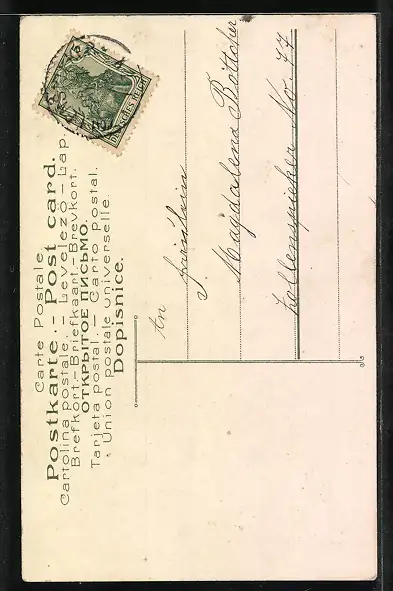 Carte Postale
Postkarte. - Post card.
Cartolina postale. - Levelező - Lap
Brefkort.-Briefkaart.-Brevkort.
ОТКРЫТОЕ ПИСЬМО.
Tarjeta postal. - Carto Postal.
Union postale universelle.
Dopisnice.
An
Fräulein
J. Magdalena Böttcher
Zollenspieker No. 77